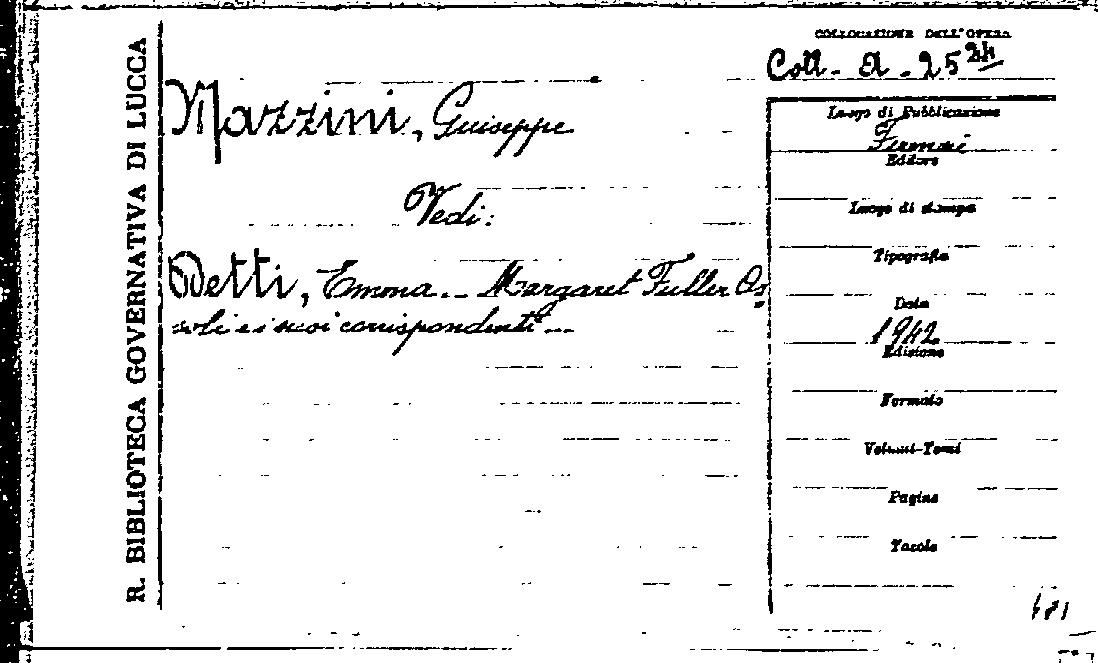 R. BIBLIOTECA GOVERNATIVA DI LUCCA
COLLOCAZIONE DELL'OPERA
Coll. A. 25 24
Mazzini, Giuseppe
Vedi:
Detti, Emma. - Margaret Fuller Os
soli e i suoi corrispondenti ...
Luogo di Pubblicazione
Firenze
Editore
Luogo di stampa
Tipografia
Data
1942
Edizione
Formato
Volumi-Tomi
Pagine
Tavole